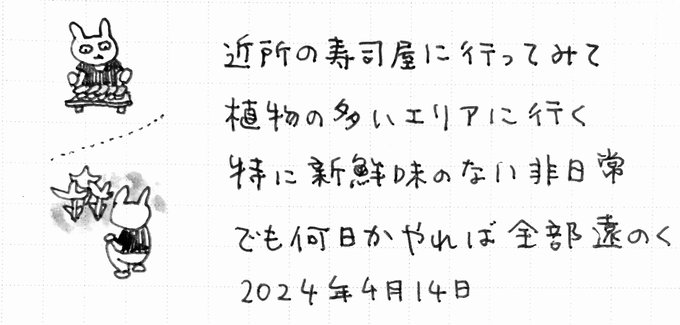 近所の寿司屋に行ってみて
植物の多いエリアに行く
特に新鮮味のない非日常
でも何日かやれば全部遠のく
2024年4月14日